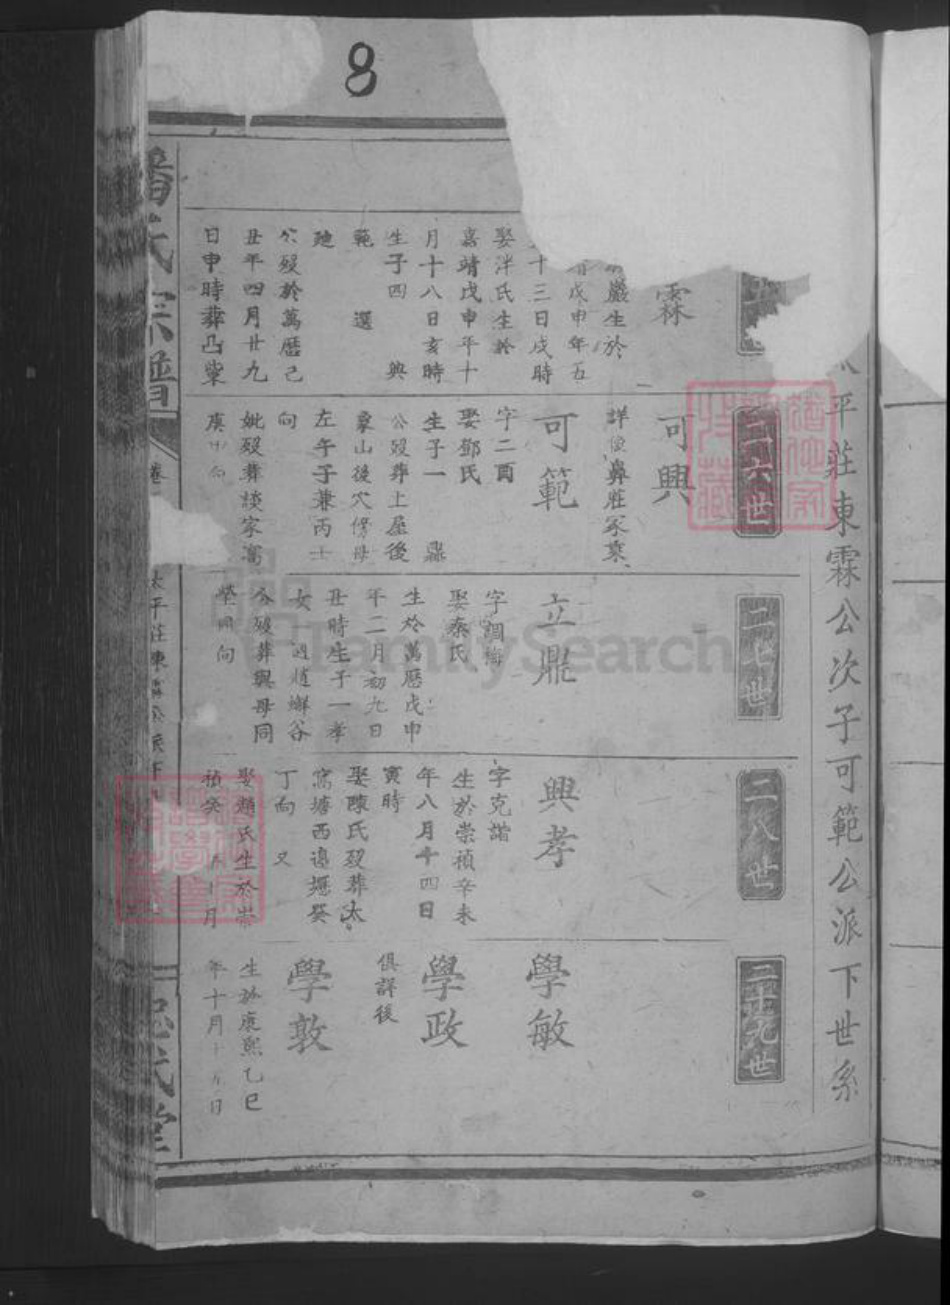 8
平莊東霖公次子可範公派下世系
霖
巖生於
戊申年五
十三日戌時
娶泮氏生於
嘉靖戊申年十
月十八日亥時
生子四 興
範 選
公歿於萬曆己
丑年四月廿九
日申時葬凸業
二六世
可興
詳後鼻莊冢業
可範
字二酉
娶鄧氏
生子一 鼎
公歿葬土屋後
象山後穴傍母
左午子兼丙壬
向
妣歿葬談家窩
庚
二七世
立鼎
字調梅
娶秦氏
生於萬曆戊申
年二月初九日
丑時生子一孝
女 適趙獬谷
公歿葬與母同
塋同向
二八世
興孝
字克諧
生於崇禎辛未
年八月十四日
寅時
娶陳氏歿葬太
窩塘西邊堰癸
丁向 又
娶顏氏生於崇
禎癸 月
二十九世
學敏
學政
俱詳後
學敦
生於康熙乙巳
年十月十 日
潘氏宗譜
卷
太平莊東霖公派下